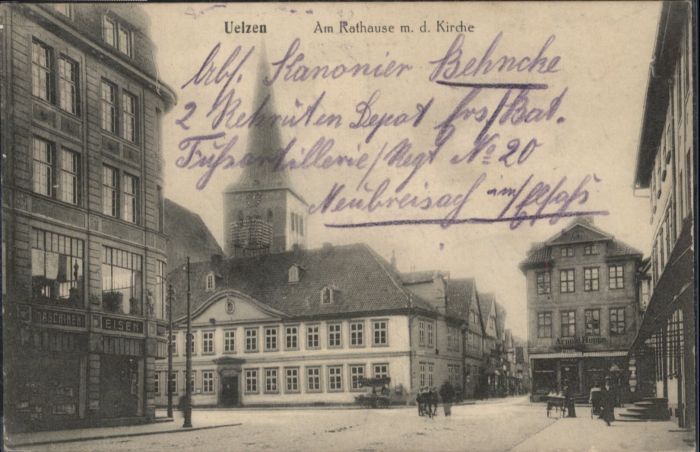 Uelzen Am Rathause m. d. Kirche
Abs. Kanonier Behncke
2 Rekruten Depot Ers/Bat.
Fußartillerie/Regt No 20
Neubreisach im/Elsaß
MASCHINEN EISEN